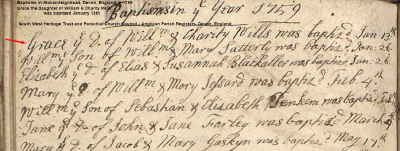 Baptisms in Stokeinteignhead, Devon, England 1759
Grace the daughter of William & Charity Wills
was baptized January 13th
South West Heritage Trust and Parochial Church Council; Anglican Parish Registers, Devon, England
Baptisms in ye Year 1759
Grace ye D. of Willm & Charity Wills was baptizd Jan 13th
Willm ye Son of Willm & Mary Tatterly was baptizd Jan: 26.
Elizabeth ye D. of Elias & Susannah Blachaller was baptizd Jan: 26.
Mary ye D. of Willm & Mary Jessard was baptizd Feb. 4th
Willm ye Son of Sebastian & Elizabeth was baptizd Feb.
Jane ye D. of John & Jane Farley was baptizd March
Mary ye D. of Jacob & Mary Gaskyn was baptizd May 17th